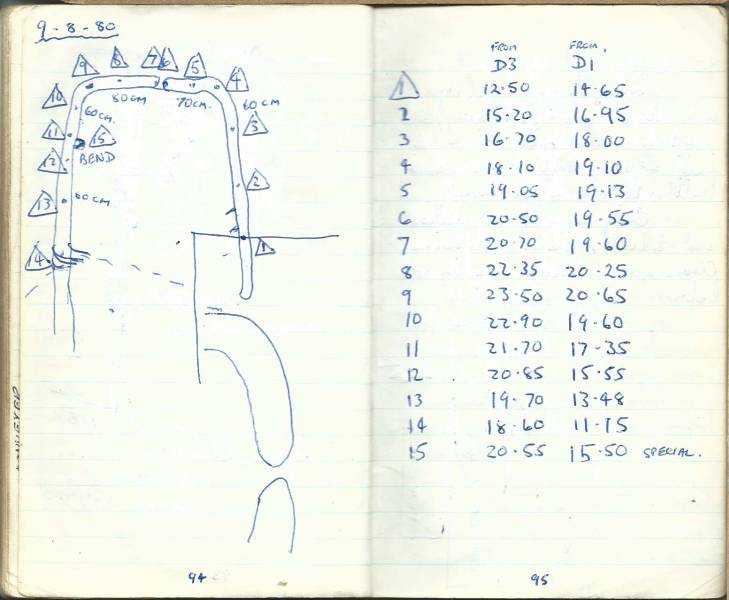 9-8-80
9 8 7 6 5 4
10 80CM 70CM. 60CM
60CM.
11 15 3
12 BEND 2
13 60CM
14 1
94
FROM FROM.
D3 D1
1 12.50 14.65
2 15.20 16.95
3 16.70 18.00
4 18.10 19.10
5 19.05 19.13
6 20.50 19.55
7 20.70 19.60
8 22.35 20.25
9 23.50 20.65
10 22.90 19.60
11 21.70 17-35
12 20.85 15.55
13 19.70 13-48
14 18.60 11-15
15 20.55 15.50 SPECIAL.
95